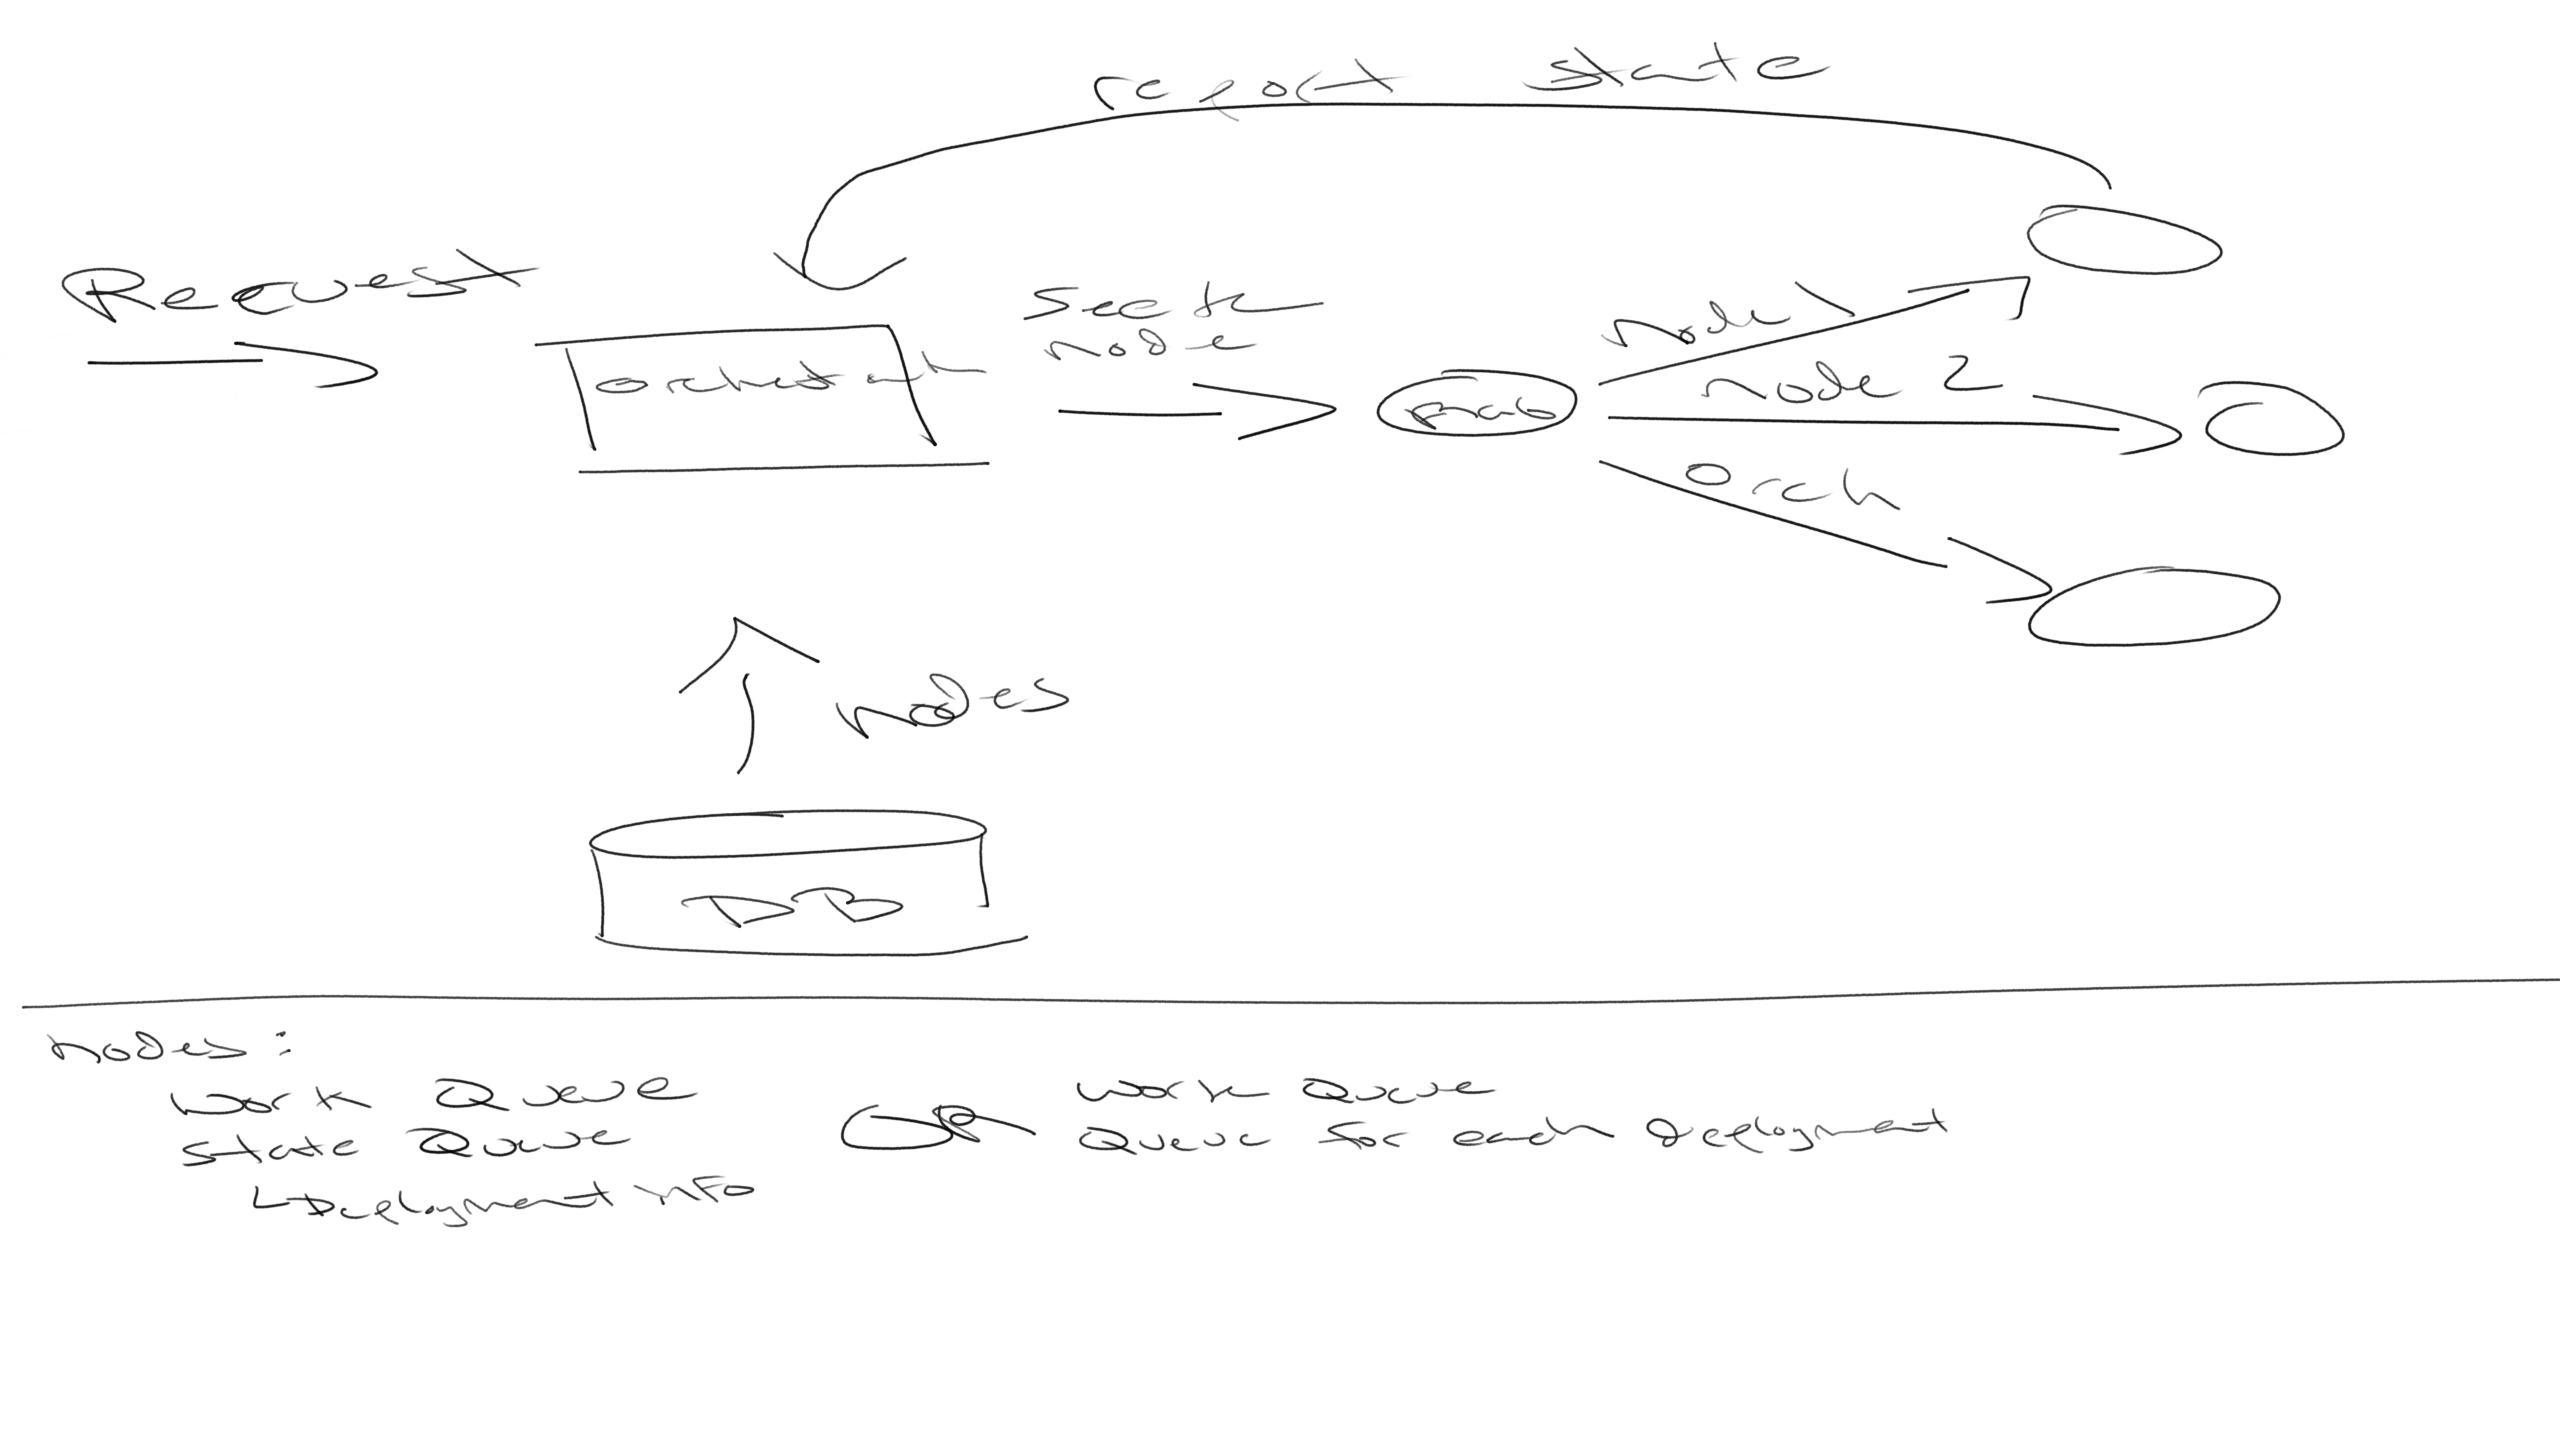 report state
Request
Seek
node
orchestrat
Node 1
Node 2
Orch
Nodes
DB
Nodes:
Work Queue
State Queue
Deployment info
OR
Work Queue
Queue for each deployment